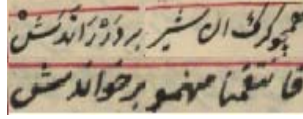 همچو کرک ان شیر بردرراندش
فانتقمنا منهمو برخواندش